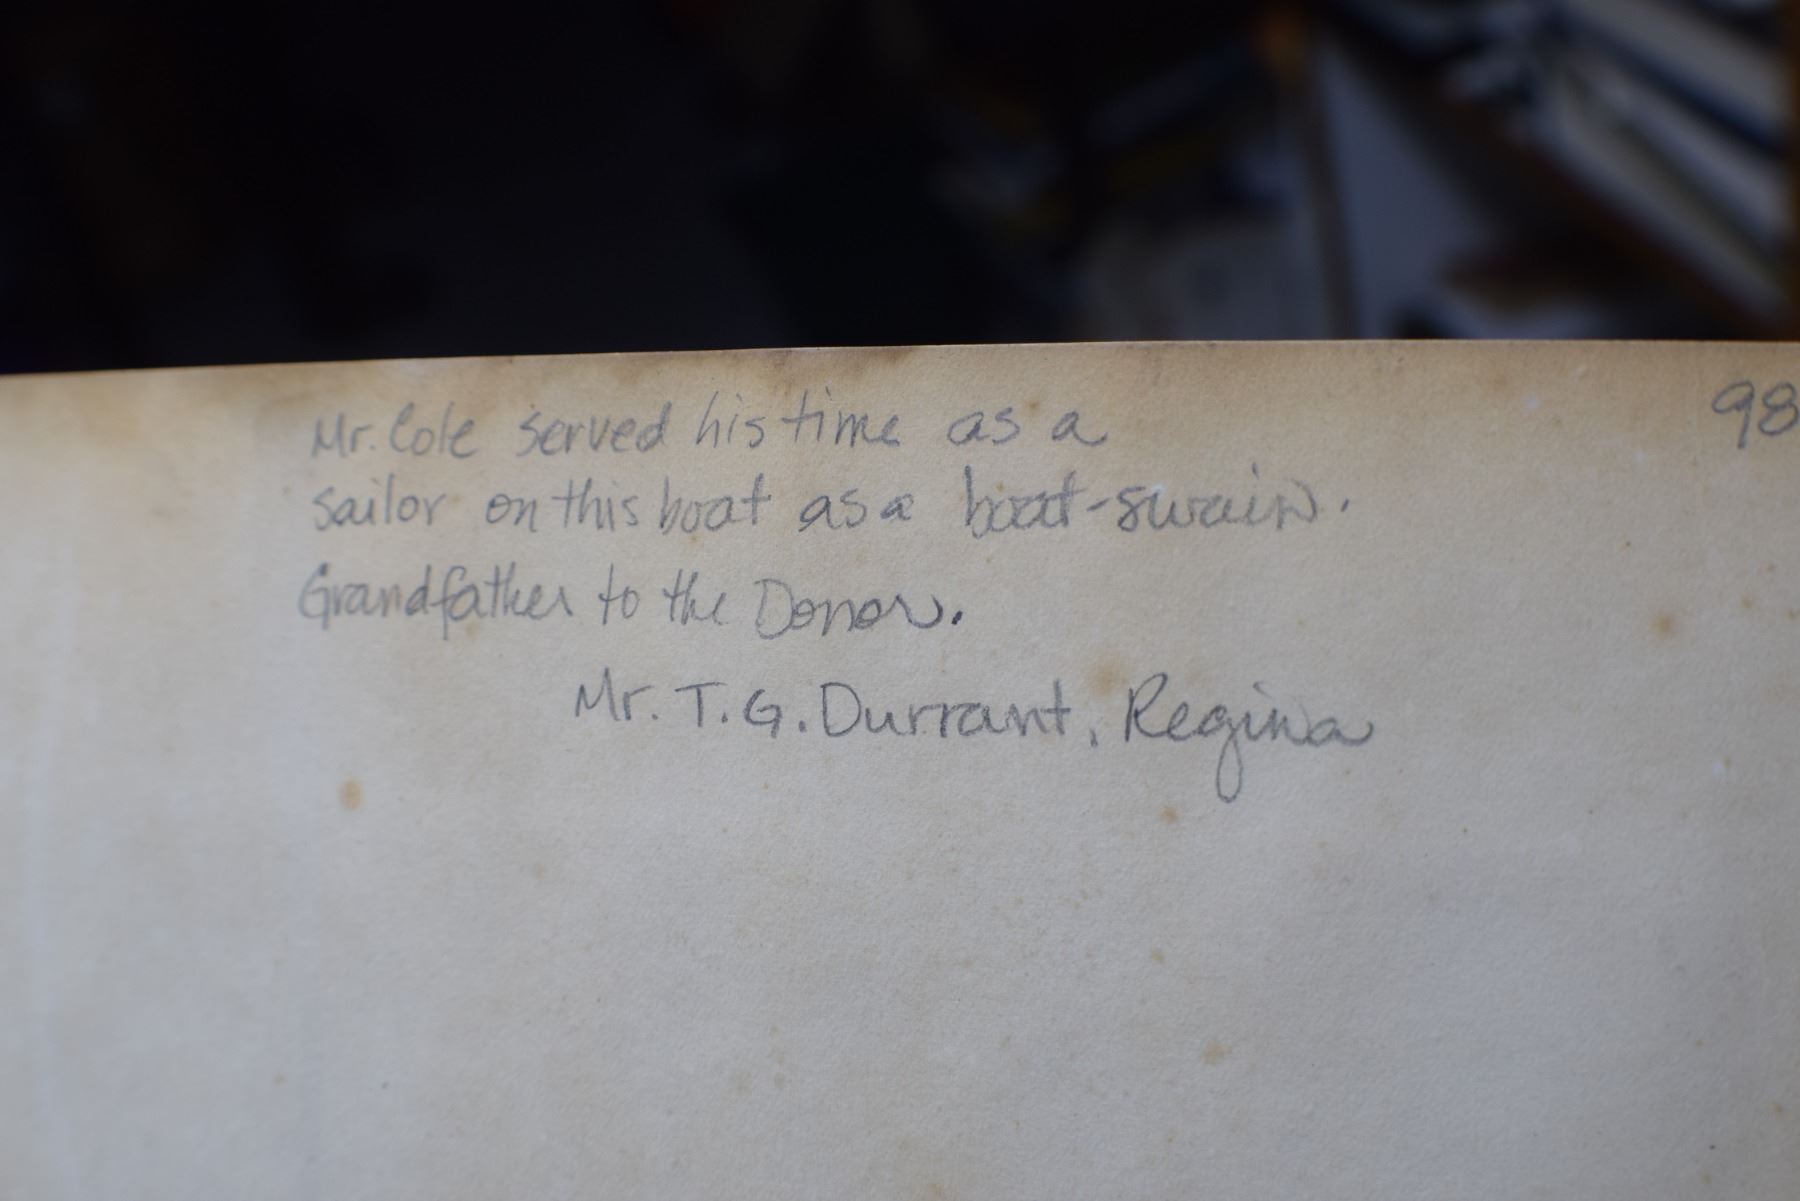 Mr. Cole served his time as a
98
sailor on this boat as a boat-swain.
Grandfather to the Donor.
Mr. T.G. Durrant, Regina